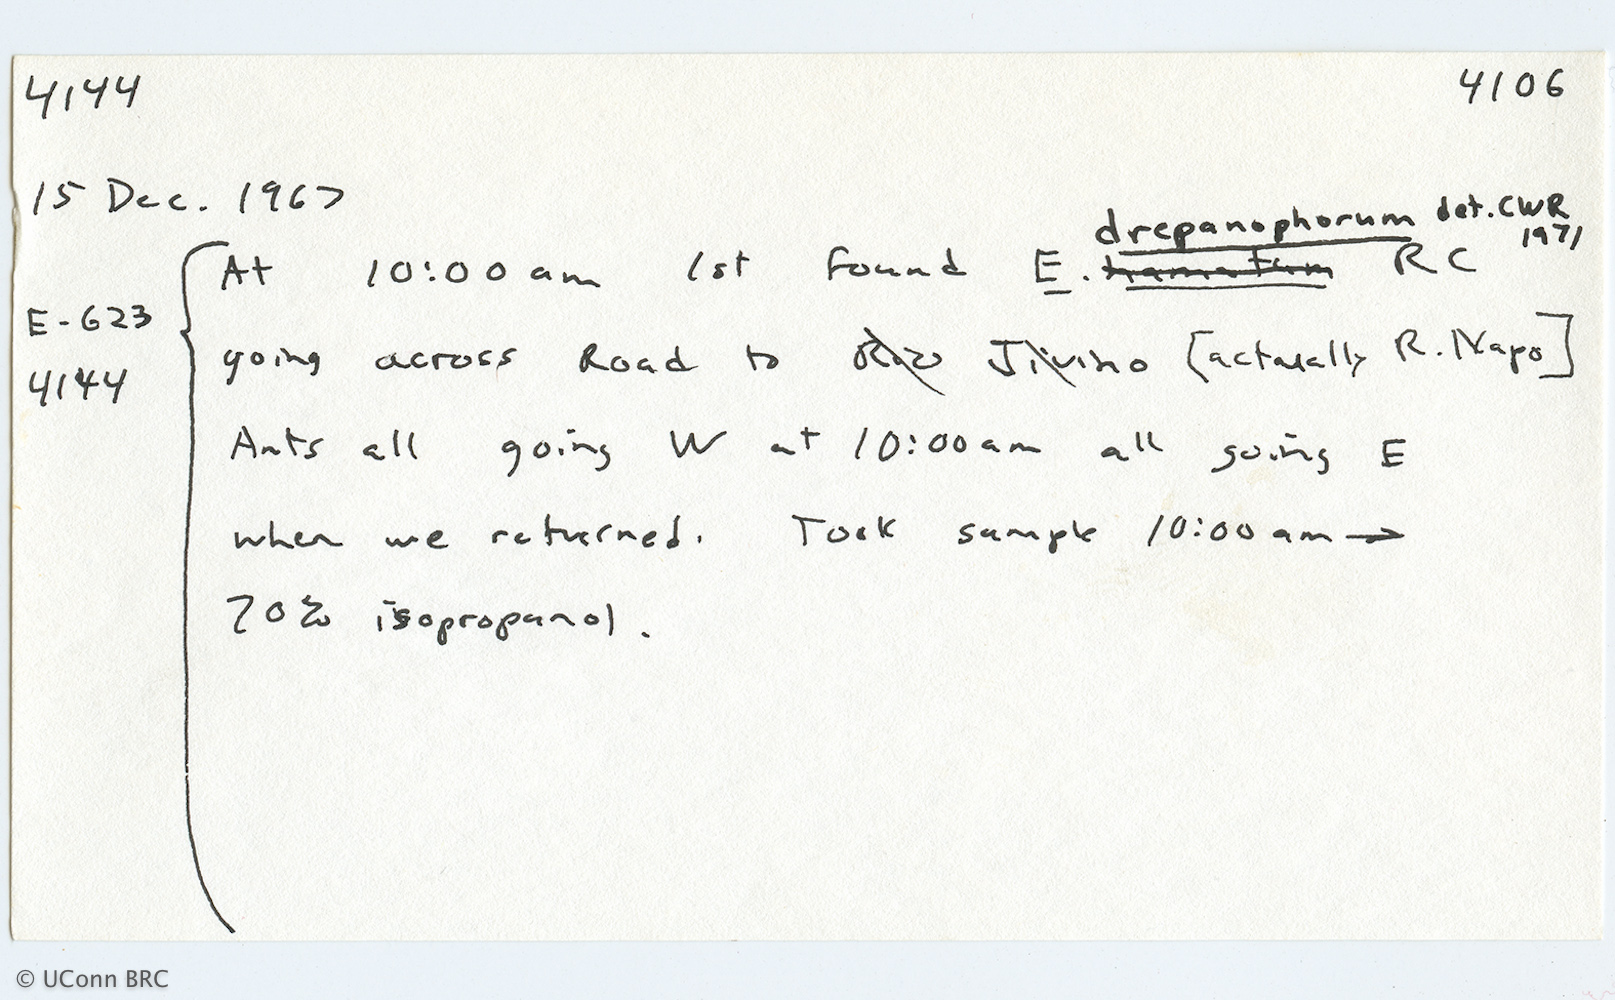 4144 4106
15 Dec. 1967
drepanophorum det. CWR 1971
At 10:00 am 1st found E. hamatum RC
E-623 going across Road to Rio Jivino [actually R. Napo]
4144
Ants all going W at 10:00 am all going E
when we returned. Took sample 10:00 am →
70% isopropanol.
© UConn BRC